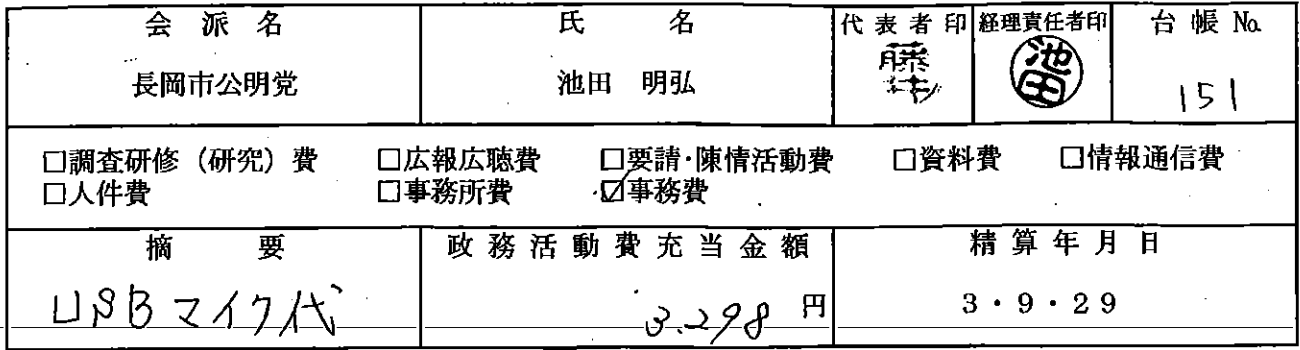 会派名 氏名 代表者印 経理責任者印 台帳No.
長岡市公明党 池田 明弘 池田 151
□調査研修（研究）費 □広報広聴費 □要請・陳情活動費 □資料費 □情報通信費
□人件費 □事務所費 ☑事務費
摘要 政務活動費充当金額 精算年月日
USBマイク代 3.298 円 3・9・29